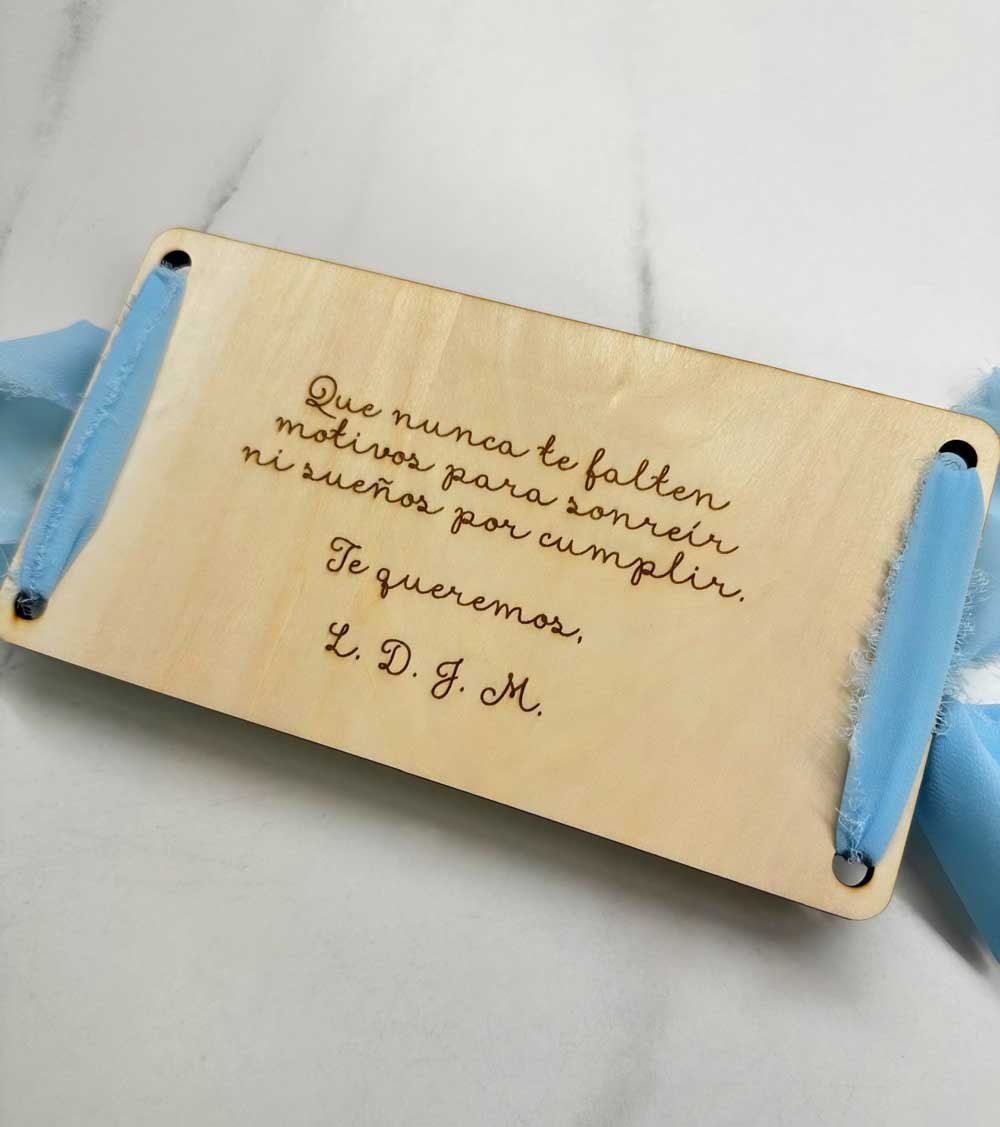 Que nunca te falten
motivos para sonreír
ni sueños por cumplir.
Te queremos,
L. D. J. M.